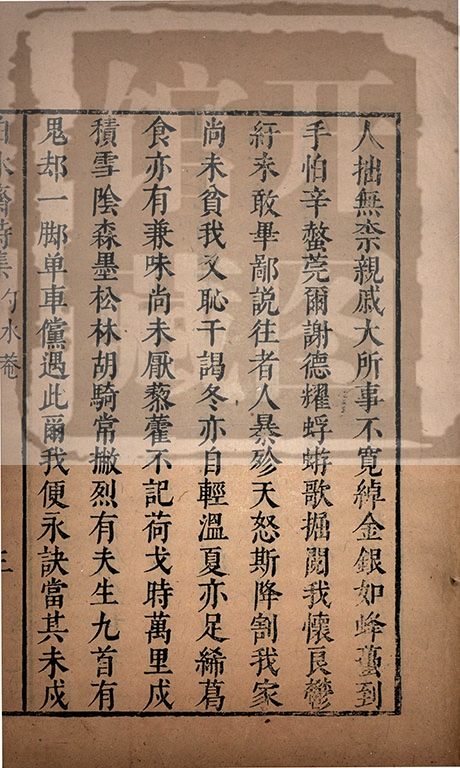 人拙無柰親戚大所事不寬綽金銀如蜂蠆到
手怕辛螫莞爾謝德耀蜉蝣歌掘閱我懷良鬱
紆來敢畢鄙說往者人暴殄天怒斯降割我家
尚未貧我又恥干謁冬亦自輕溫夏亦足絺葛
食亦有兼味尚未厭藜藿不記荷戈時萬里戍
積雪陰森墨松林胡騎常撇烈有夫生九首有
鬼却一脚单車儻遇此爾我便永訣當其未戍
白水齋詩集 勺水菴 三
開圖
館藏